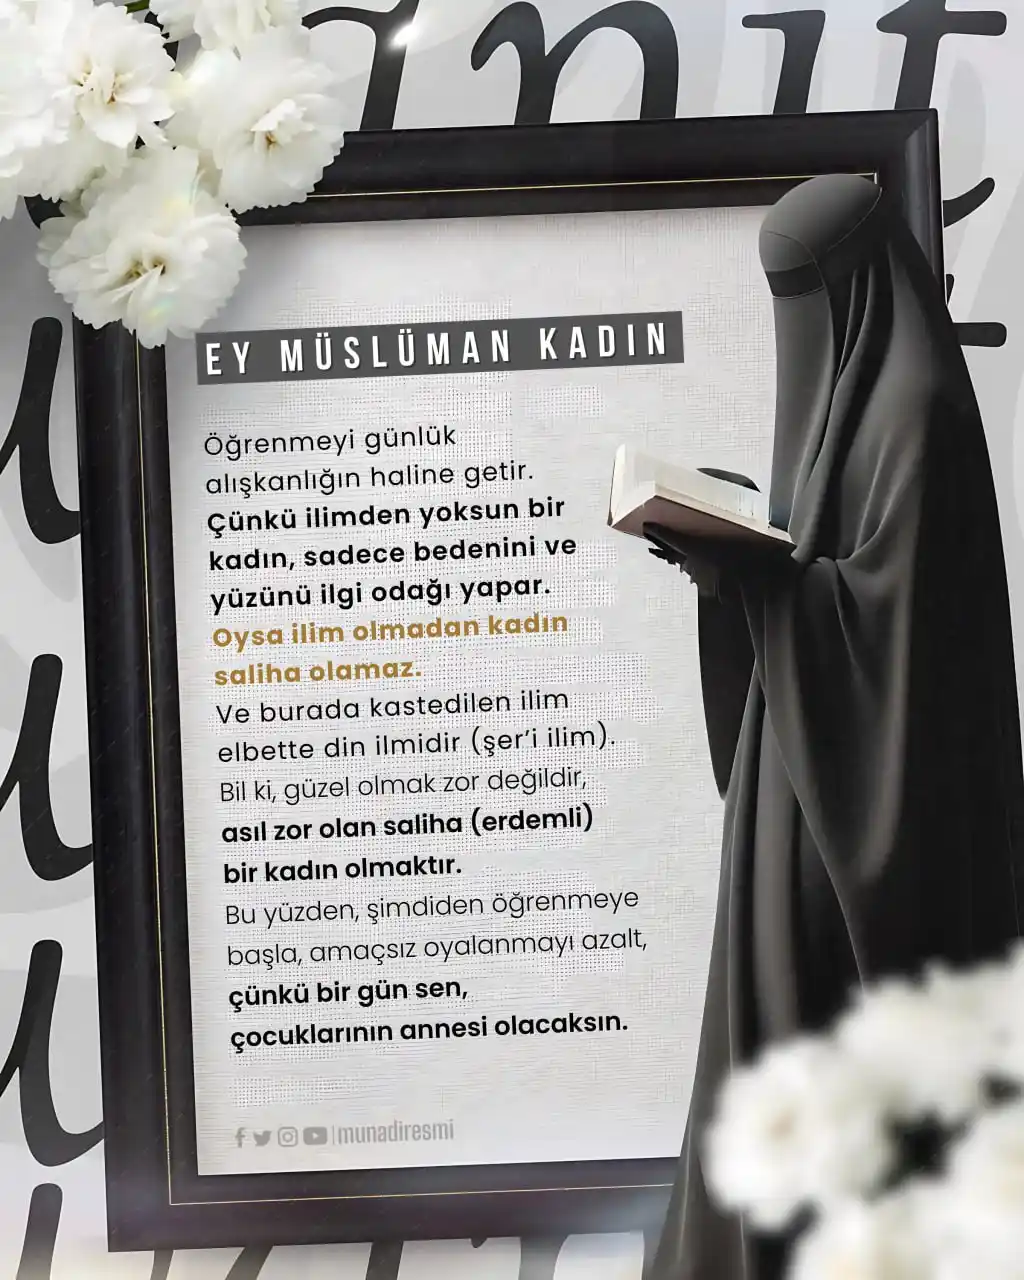 EY MÜSLÜMAN KADIN
Öğrenmeyi günlük
alışkanlığın haline getir.
Çünkü ilimden yoksun bir
kadın, sadece bedenini ve
yüzünü ilgi odağı yapar.
Oysa ilim olmadan kadın
saliha olamaz.
Ve burada kastedilen ilim
elbette din ilmidir (şer'i ilim).
Bil ki, güzel olmak zor değildir,
asıl zor olan saliha (erdemli)
bir kadın olmaktır.
Bu yüzden, şimdiden öğrenmeye
başla, amaçsız oyalanmayı azalt,
çünkü bir gün sen,
çocuklarının annesi olacaksın.
munadiresmi